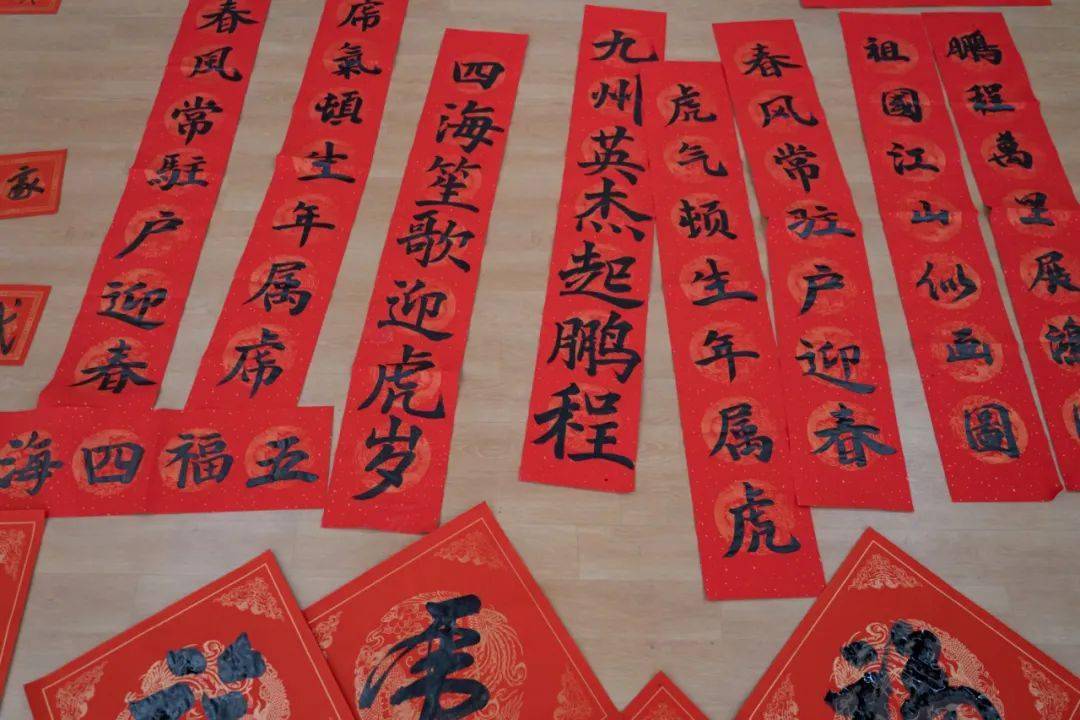 春風常駐户迎春
虎氣頓生年属虎
四海笙歌迎虎岁
九州英杰起鹏程
虎气顿生年属虎
春风常驻户迎春
祖國江山似画圖
鵬程萬里展
家
五福四海
虎
福